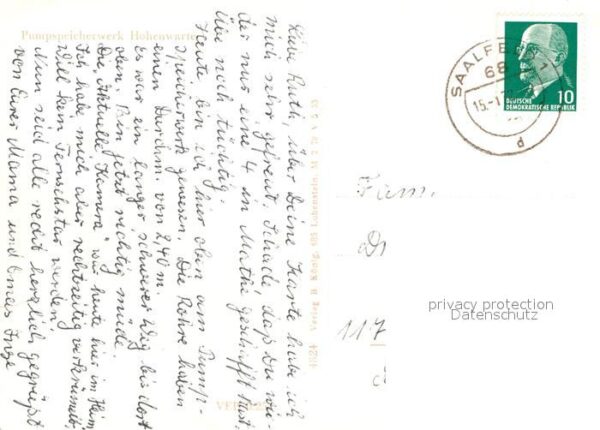 Pumpspeicherwerk Hohenwarte
Liebe Ruth, über Deine Karte habe ich
mich sehr gefreut. Schade, daß Du wie-
der nur eine 4 in Mathe geschafft hast.
Üb noch tüchtig!
Heute bin ich hier oben am Pump-
speicherwerk gewesen. Die Rohre haben
einen Durchm. von 2,40 m.
Es war ein langer, schwerer Weg bis dort
oben. Bin jetzt richtig müde.
Die "Aktuelle Kamera" war heute hier im Heim.
Ich habe mich aber rechtzeitig verkrümelt.
Will kein Fernsehstar werden.
Nun seid alle recht herzlich gegrüßt
von Eurer Mama und Omas Inge
4824 Verlag R. König, 685 Lobenstein.
SAALFELD 1
68
15.-1
d
10
DEUTSCHE
DEMOKRATISCHE REPUBLIK
Fam.
117
privacy protection
Datenschutz